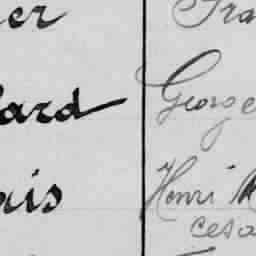 er Fra
ard George
ais Henri M
Cesa